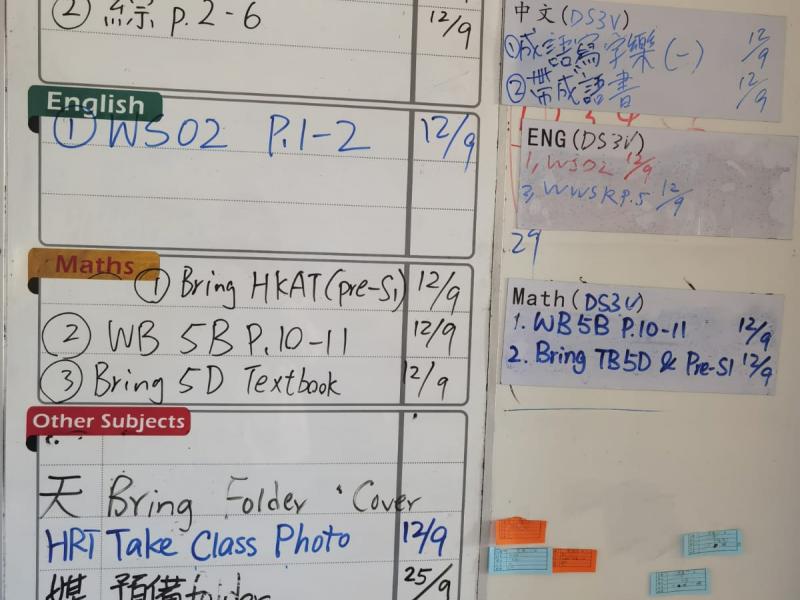 ② 綜 p.2-6 12/9
English
① WS02 P.1-2 12/9
Maths
① Bring HKAT (pre-S1) 12/9
② WB 5B P.10-11 12/9
③ Bring 5D Textbook 12/9
Other Subjects
天 Bring Folder Cover
HRT Take Class Photo 12/9
預備folder 25/9
中文(DS3V)
①成語寫字樂(一) 12/9
②帶成語書 12/9
ENG(DS3V)
1, WS02 12/9
3, WWSRP.5 12/9
29
Math(DS3V)
1. WB 5B P.10-11 12/9
2. Bring TB5D & Pre-S1 12/9